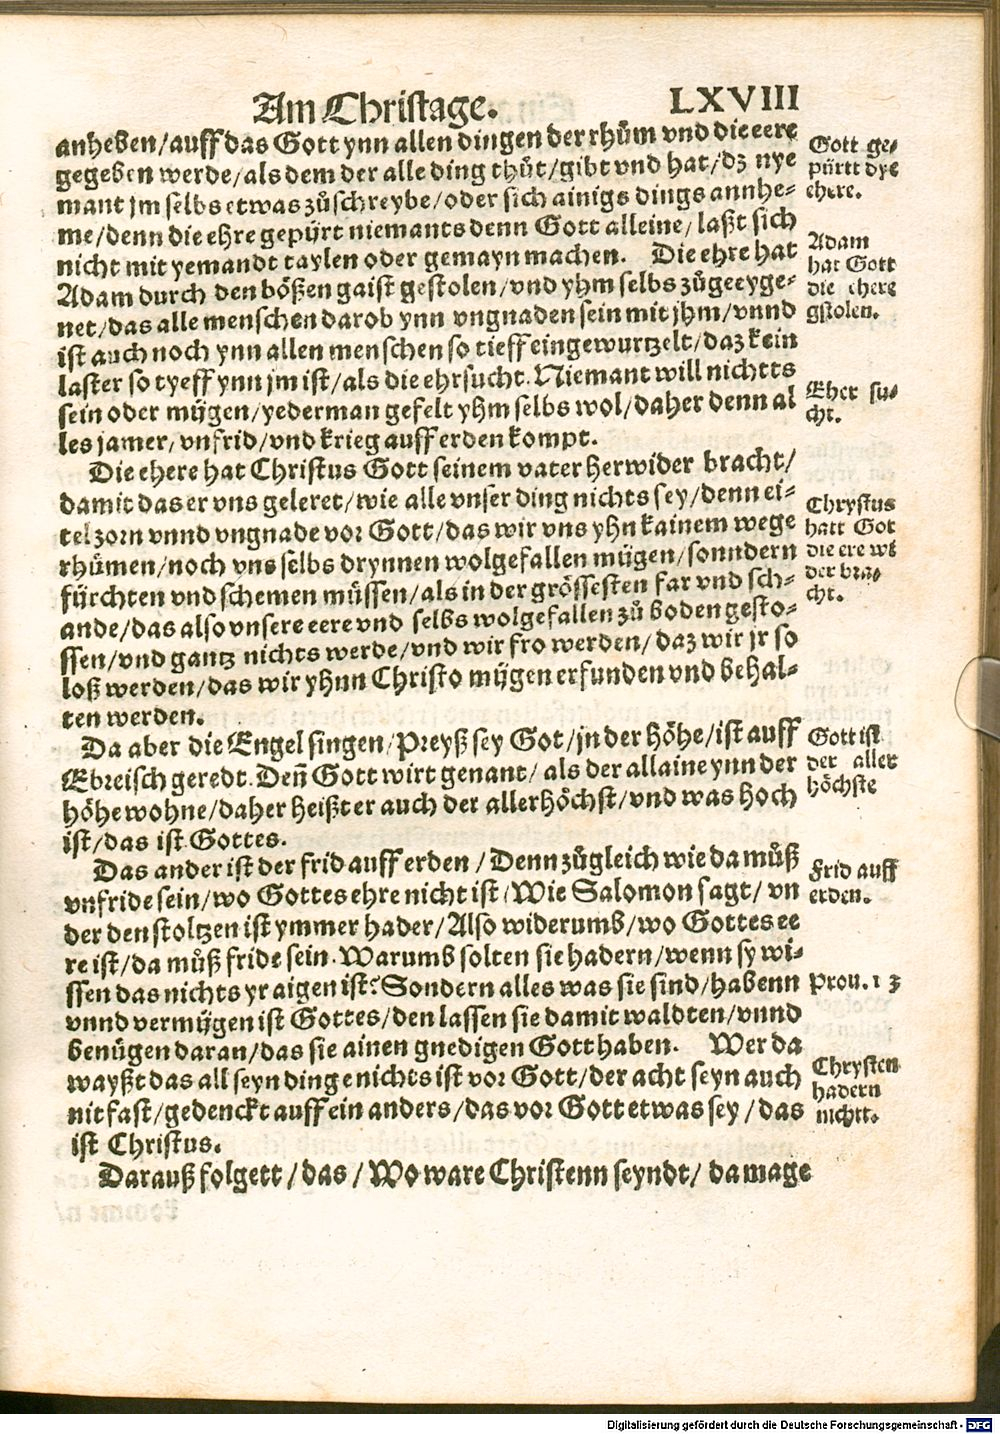 Am Christage.
LXVIII
anheben/auff das Gott ynn allen dingen der rhům vnd die eere
gegeben werde/als dem der alle ding thůt/gibt vnd hat/dz nye
mant jm selbs etwas zůschreybe/oder sich ainigs dings annhe⸗
me/denn die ehre gepürt niemants denn Gott alleine/laßt sich
nicht mit yemandt taylen oder gemayn machen. Die ehre hat
Adam durch den bößen gaist gestolen/vnd yhm selbs zůgeeyge⸗
net/das alle menschen darob ynn vngnaden sein mit jhm/vnnd
ist auch noch ynn allen menschen so tieff eingewurtzelt/daz kein
laster so tyeff ynn jm ist/als die ehrsucht. Niemant will nichtts
sein oder mügen/yederman gefelt yhm selbs wol/daher denn al
les jamer/vnfrid/vnd krieg auff erden kompt.
Die ehere hat Christus Gott seinem vater herwider bracht/
damit das er vns geleret/wie alle vnser ding nichts sey/denn ei⸗
tel zorn vnnd vngnade vor Gott/das wir vns yhn kainem wege
rhümen/noch vns selbs drynnen wolgefallen mügen/sonndern
fürchten vnd schemen müssen/als in der grössesten far vnd sch⸗
ande/das also vnsere eere vnd selbs wolgefallen zů boden gesto⸗
ssen/vnd gantz nichts werde/vnd wir fro werden/daz wir jr so
loß werden/das wir yhnn Christo mügen erfunden vnd behal⸗
ten werden.
Da aber die Engel singen/Preyß sey Got/jn der höhe/ist auff
Ebreisch geredt. Deñ Gott wirt genant/als der allaine ynn der
höhe wohne/daher heißt er auch der allerhöchst/vnd was hoch
ist/das ist Gottes.
Das ander ist der frid auff erden/Denn zůgleich wie da můß
vnfride sein/wo Gottes ehre nicht ist/Wie Salomon sagt/vn
der den stoltzen ist ymmer hader/Also widerumb/wo Gottes ee
re ist/da můß fride sein. Warumb solten sie hadern/wenn sy wi⸗
ssen das nichts yr aigen ist? Sondern alles was sie sind/habenn
vnnd vermügen ist Gottes/den lassen sie damit waldten/vnnd
benügen daran/das sie ainen gnedigen Gott haben. Wer da
wayßt das all seyn dinge nichts ist vor Gott/der acht seyn auch
nit fast/gedenckt auff ein anders/das vor Gott etwas sey/das
ist Christus.
Darauß folgett/das/Wo ware Christenn seyndt/da mage
Gott ge⸗
pürtt dye
ehere.
Adam
hat Gott
die ehere
gstolen.
Eher su⸗
cht.
Chrystus
hatt Got
die ere wi
der bra⸗
cht.
Gott ist
der aller
höchste
Frid auff
erden.
Prou. 13
Chrysten
hadern
nichtt.
Digitalisierung gefördert durch die Deutsche Forschungsgemeinschaft - DFG